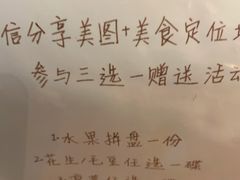 信分享美图+美食定位
参与三选一赠送活动
1.水果拼盘一份
2.花生/毛豆任选一碟